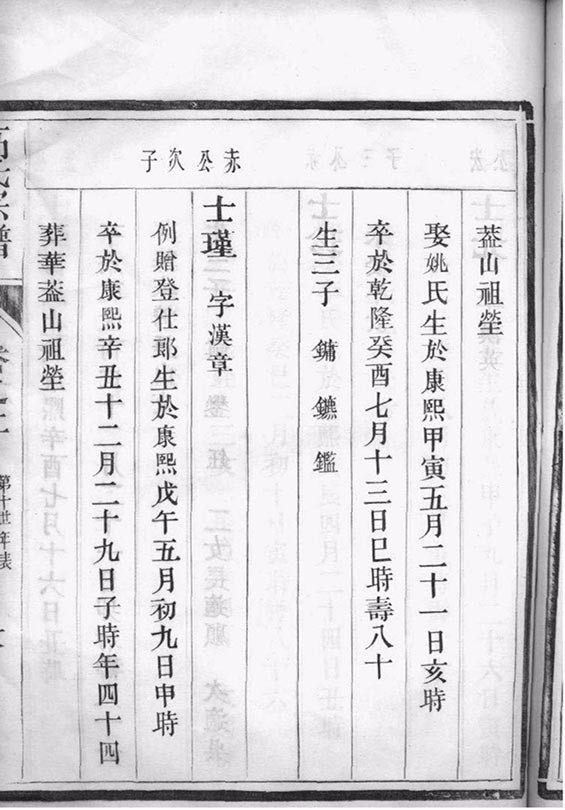 赤公次子
葢山祖塋
娶姚氏生於康熙甲寅五月二十一日亥時
卒於乾隆癸酉七月十三日巳時壽八十
生三子 鏞 鑣 鑑
士瑾 字漢章
例贈登仕郎生於康熙戊午五月初九日申時
卒於康熙辛丑十二月二十九日子時年四十四
葬華葢山祖塋
氏宗譜
第十世年表